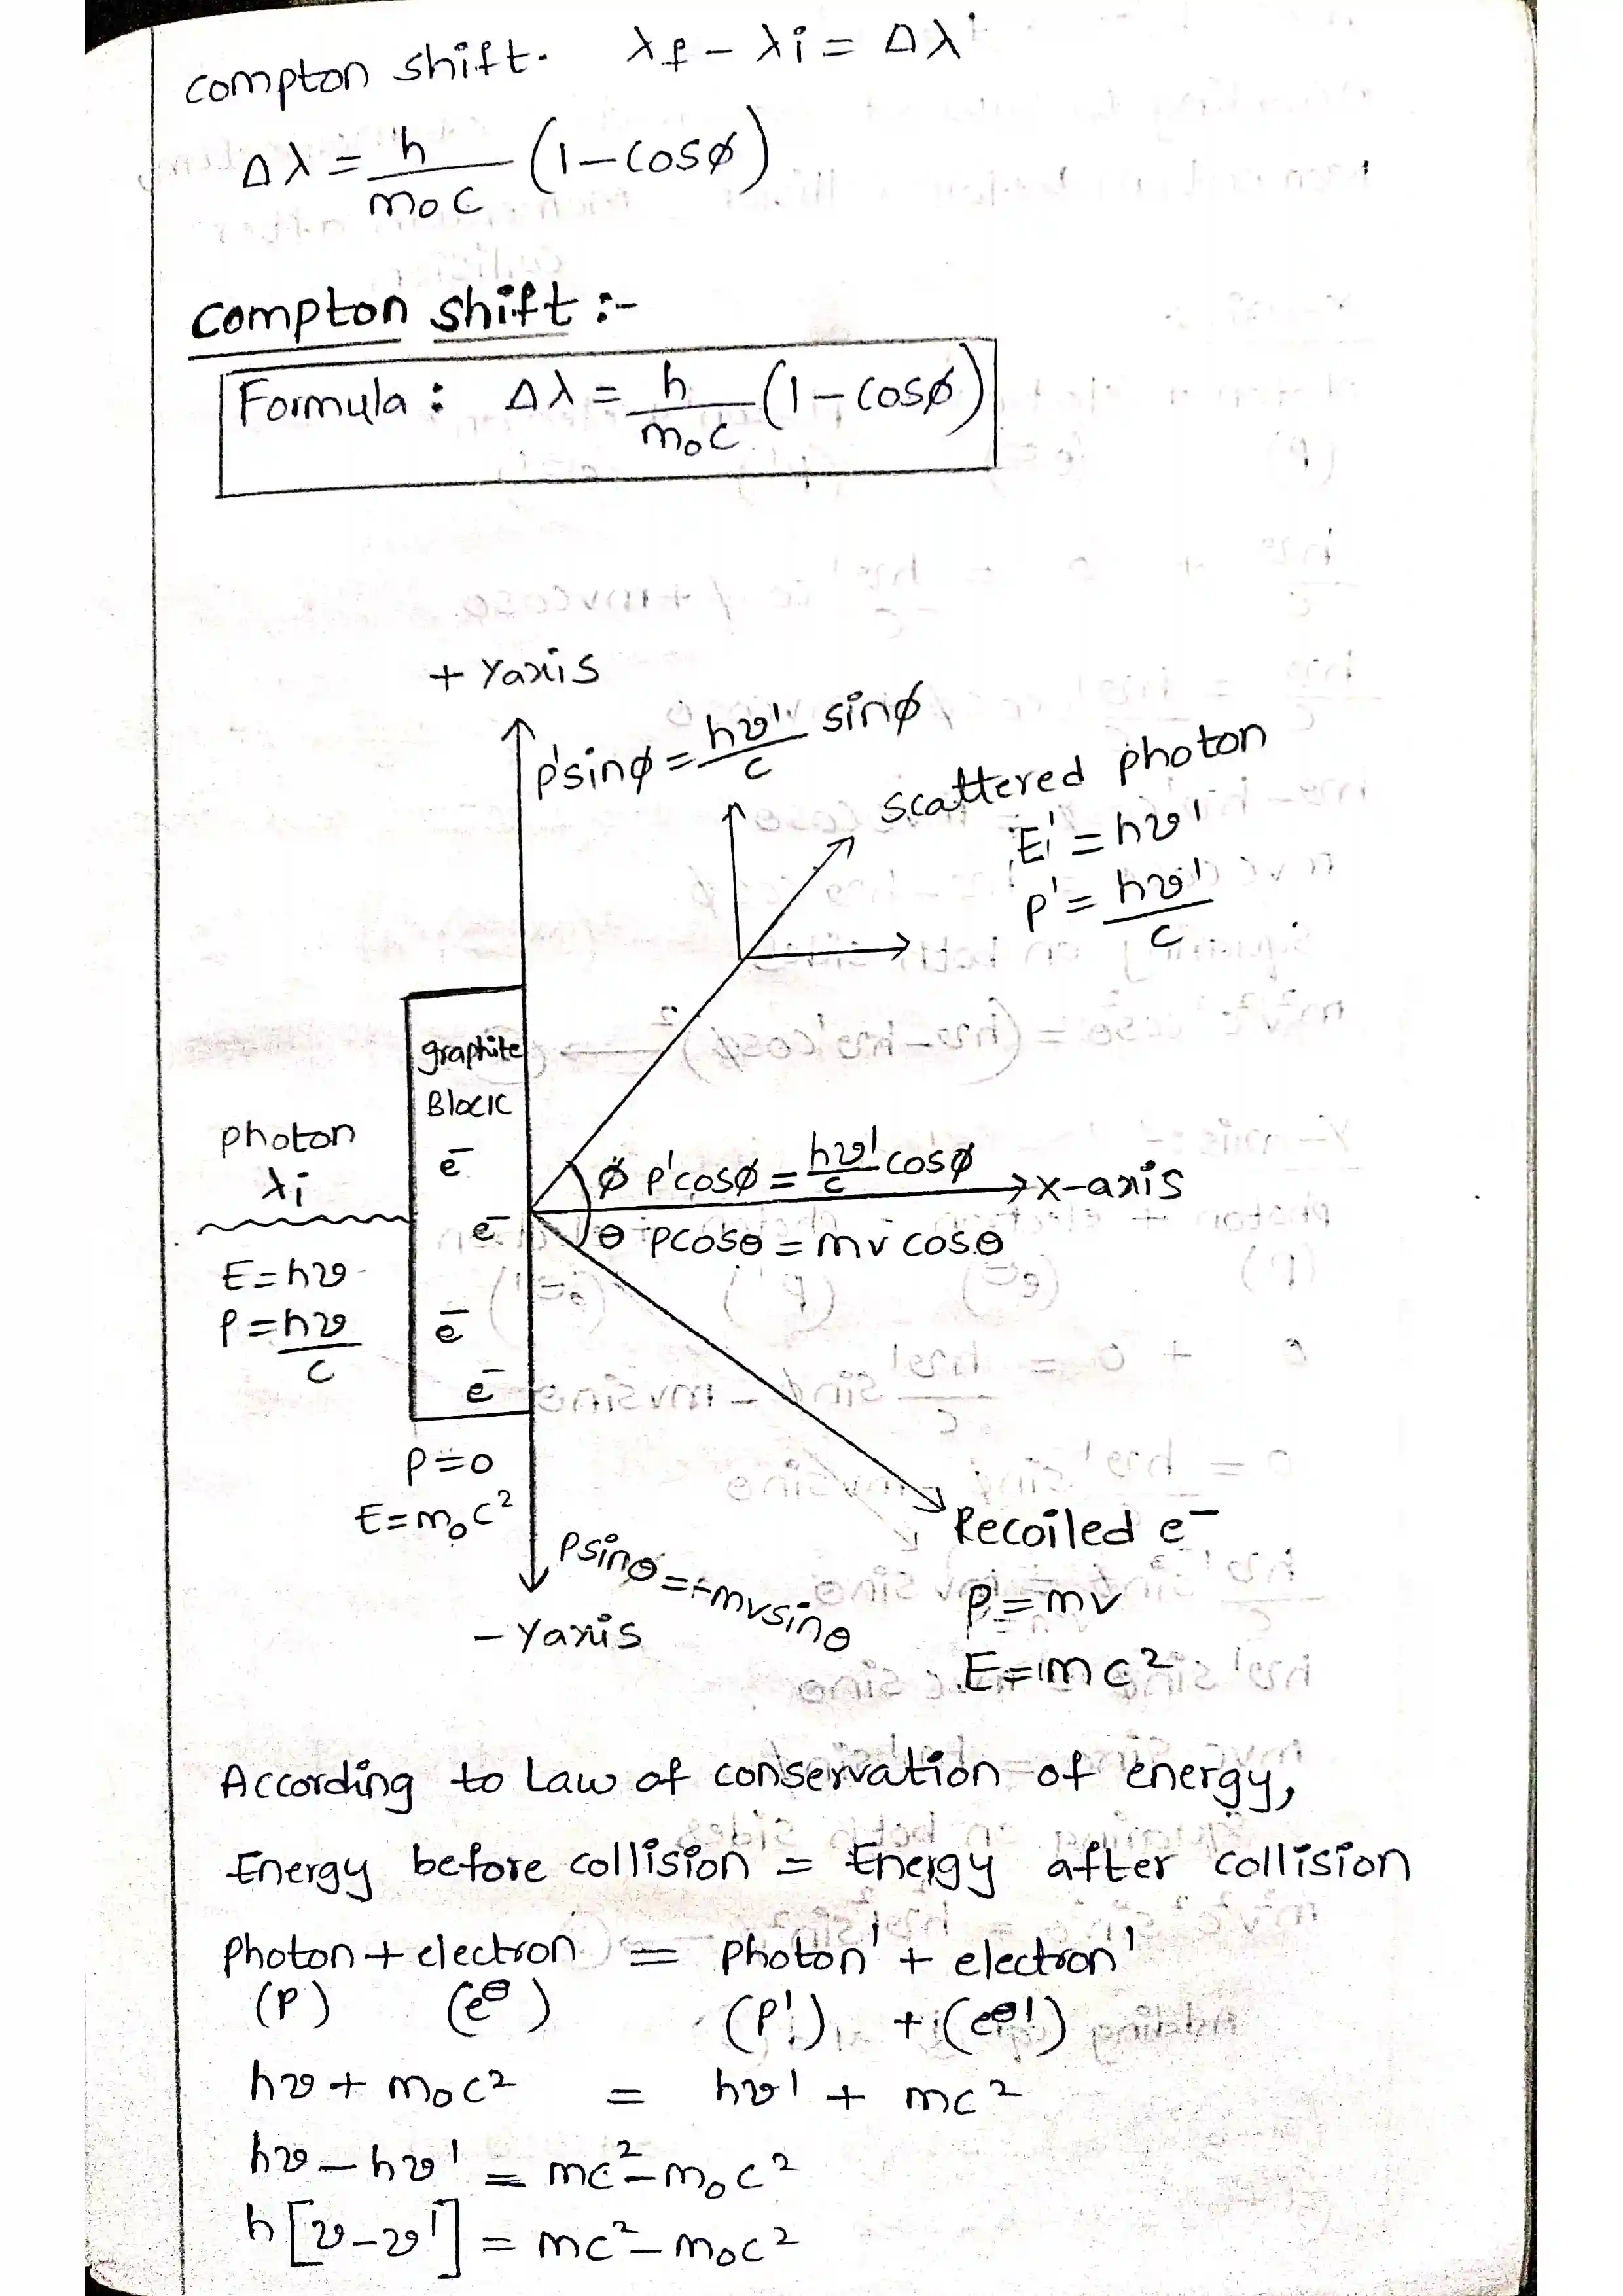 compton shift. λf - λi = Δλ
Δλ = h/m₀c (1-cosø)
compton shift :-
Formula : Δλ = h/m₀c (1-cosø)
+ Yaxis
p'sinø = hν'/c sinø
scattered photon
E' = hν'
p' = hν'/c
graphite
Block
photon
λi
e⁻
ø p'cosø = hν'/c cosø
x-axis
e⁻
θ pcosθ = mv cosθ
E = hν
P = hν/c
e⁻
e⁻
P=0
E=m₀c²
Recoiled e⁻
Psinθ = -mvsinθ
P = mv
- Yaxis
E = mc²
According to Law of conservation of energy,
Energy before collision = Energy after collision
Photon + electron = photon' + electron'
(P) (e⊖) (P') + (e⊖')
hν + m₀c² = hν' + mc²
hν - hν' = mc² - m₀c²
h[ν-ν'] = mc² - m₀c²